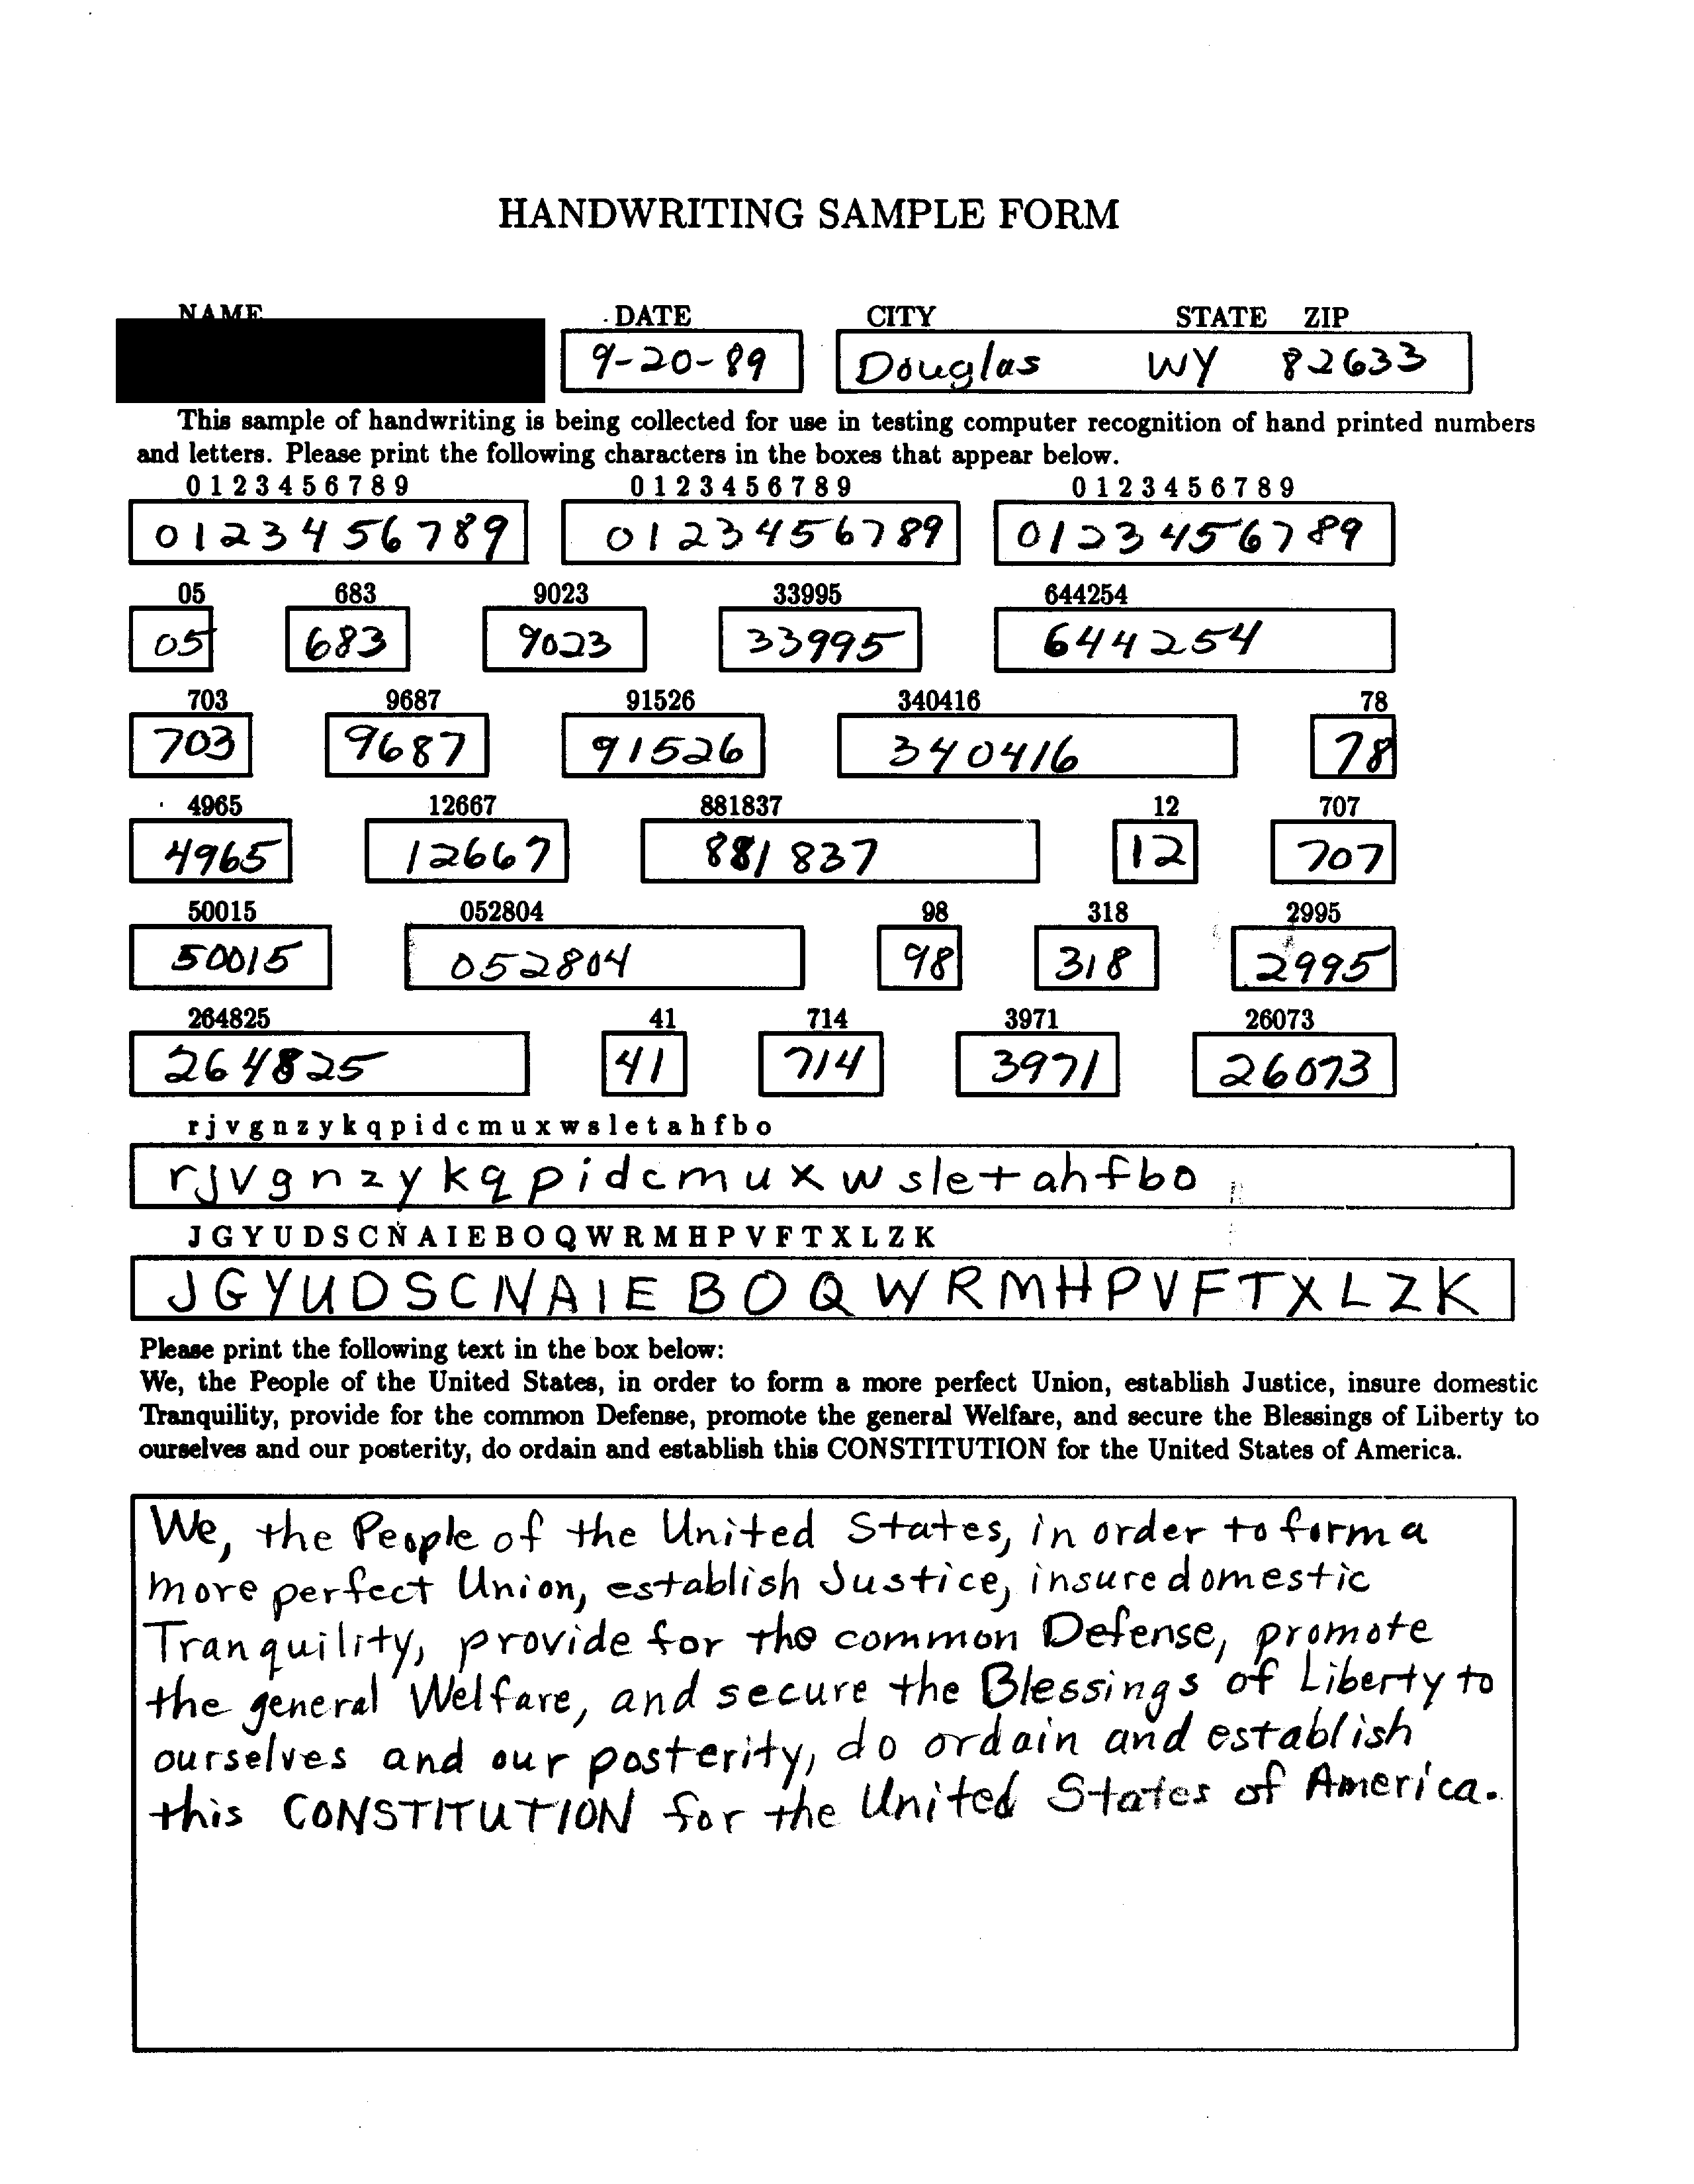 HANDWRITING SAMPLE FORM
NAME DATE CITY STATE ZIP
9-20-89 Douglas WY 82633
This sample of handwriting is being collected for use in testing computer recognition of hand printed numbers
and letters. Please print the following characters in the boxes that appear below.
0 1 2 3 4 5 6 7 8 9 0 1 2 3 4 5 6 7 8 9 0 1 2 3 4 5 6 7 8 9
0123456789 0123456789 0123456789
05 683 9023 33995 644254
05 683 9023 33995 644254
703 9687 91526 340416 78
703 9687 91526 340416 78
4965 12667 881837 12 707
4965 12667 881837 12 707
50015 052804 98 318 2995
50015 052804 98 318 2995
264825 41 714 3971 26073
264825 41 714 3971 26073
r j v g n z y k q p i d c m u x w s l e t a h f b o
r j v g n z y k q p i d c m u x w s l e t a h f b o
J G Y U D S C N A I E B O Q W R M H P V F T X L Z K
J G Y U D S C N A I E B O Q W R M H P V F T X L Z K
Please print the following text in the box below:
We, the People of the United States, in order to form a more perfect Union, establish Justice, insure domestic
Tranquility, provide for the common Defense, promote the general Welfare, and secure the Blessings of Liberty to
ourselves and our posterity, do ordain and establish this CONSTITUTION for the United States of America.
We, the People of the United States, in order to form a
more perfect Union, establish Justice, insure domestic
Tranquility, provide for the common Defense, promote
the general Welfare, and secure the Blessings of Liberty to
ourselves and our posterity, do ordain and establish
this CONSTITUTION for the United States of America.